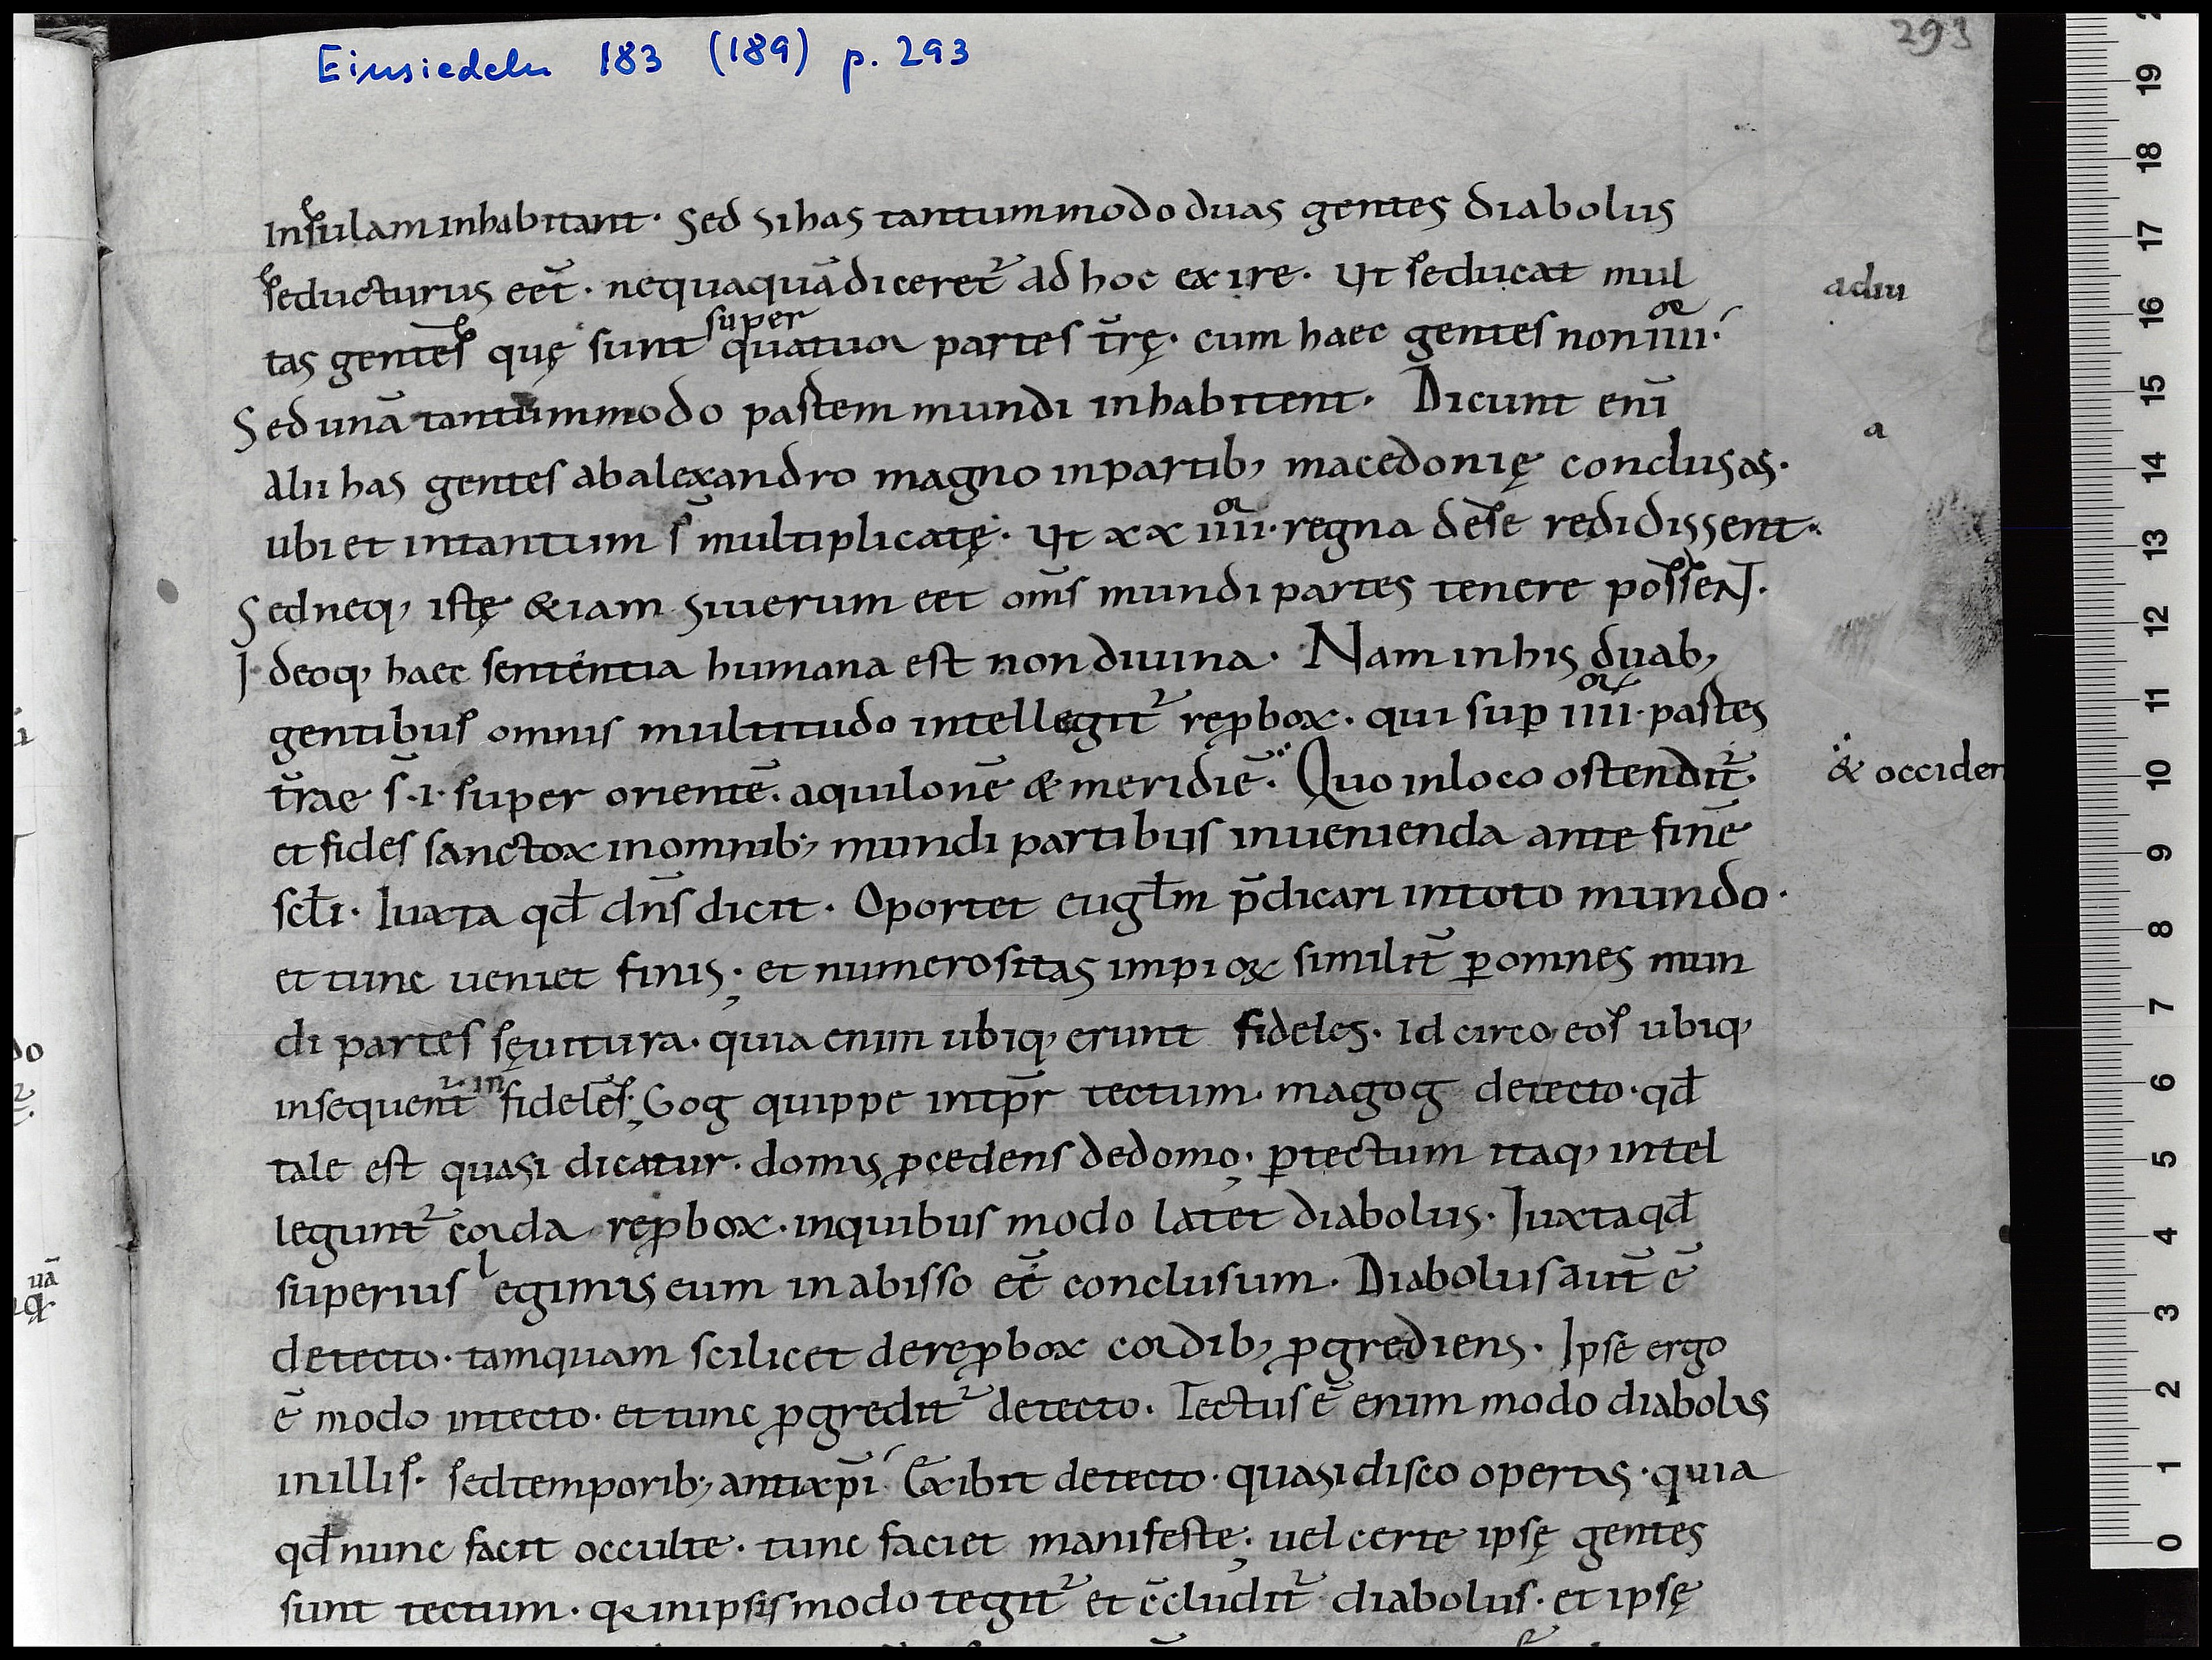 Einsiedeln 183 (189) p. 293
293
Insulam inhabitant· Sed si has tantummodo duas gentes diabolus
seducturus eet̄· nequaquā diceret᷑ ad hoc exire· Ut seducat mul
adiu
super
or
tas gentes quę sunt quatuor partes t̄rę· cum haec gentes non iiii·
Sed unā tantummodo partem mundi inhabitent· Dicunt enī
a
alii has gentes ab alexandro magno in partib; macedonię conclusas·
or
ubi et intantum s̄ multiplicatę· Ut xx iiii· regna de se redidissent·
Sed neq; istę &iam si uerum eet om̄s mundi partes tenere possent·
Ideoq; haec sententia humana est non diuina· Nam in his duab;
or
gentibus omnis multitudo intellegit᷑ reꝓboꝝ· qui suꝑ iiii· partes
t̄rae s̄·i· super orientē· aquilonē & meridiē· Quo in loco ostendit᷑·
& occiden
et fides sanctoꝝ in omnib; mundi partibus inuenienda ante finē
scłi· Iuxta qđ dn̄s dicit· Oportet eugłm p̄dicari in toto mundo·
et tunc ueniet finis; et numerositas impioꝝ similit̄ ꝑ omnes mun
di partes sęuitura· quia enim ubiq; erunt fideles· Idcirco eos ubiq;
in
insequent᷑ fideles; Gog quippe intp̄r tectum· magog detecto· qđ
tale est quasi dicatur· domus ꝓcedens de domo; ꝑ tectum itaq; intel
legunt᷑ corda reꝓboꝝ· in quibus modo latet diabolus· Iuxta qđ
superius legimus eum in abisso eē conclusum· Diabolus aut̄ ē
detecto· tamquam scilicet de reꝓboꝝ cordib; ꝓgrediens· Ipse ergo
ē modo intecto· et tunc ꝓgredit᷑ detecto· Tectus ē enim modo diabolus
in illis· sed temporib; antixp̄i Exibit detecto· quasi disco opertus· quia
qđ nunc facit occulte· tunc faciet manifeste; uel certe ipsę gentes
sunt tectum· q; in ipsis modo tegit᷑ et c̄cludit᷑ diabolus· et ipsę